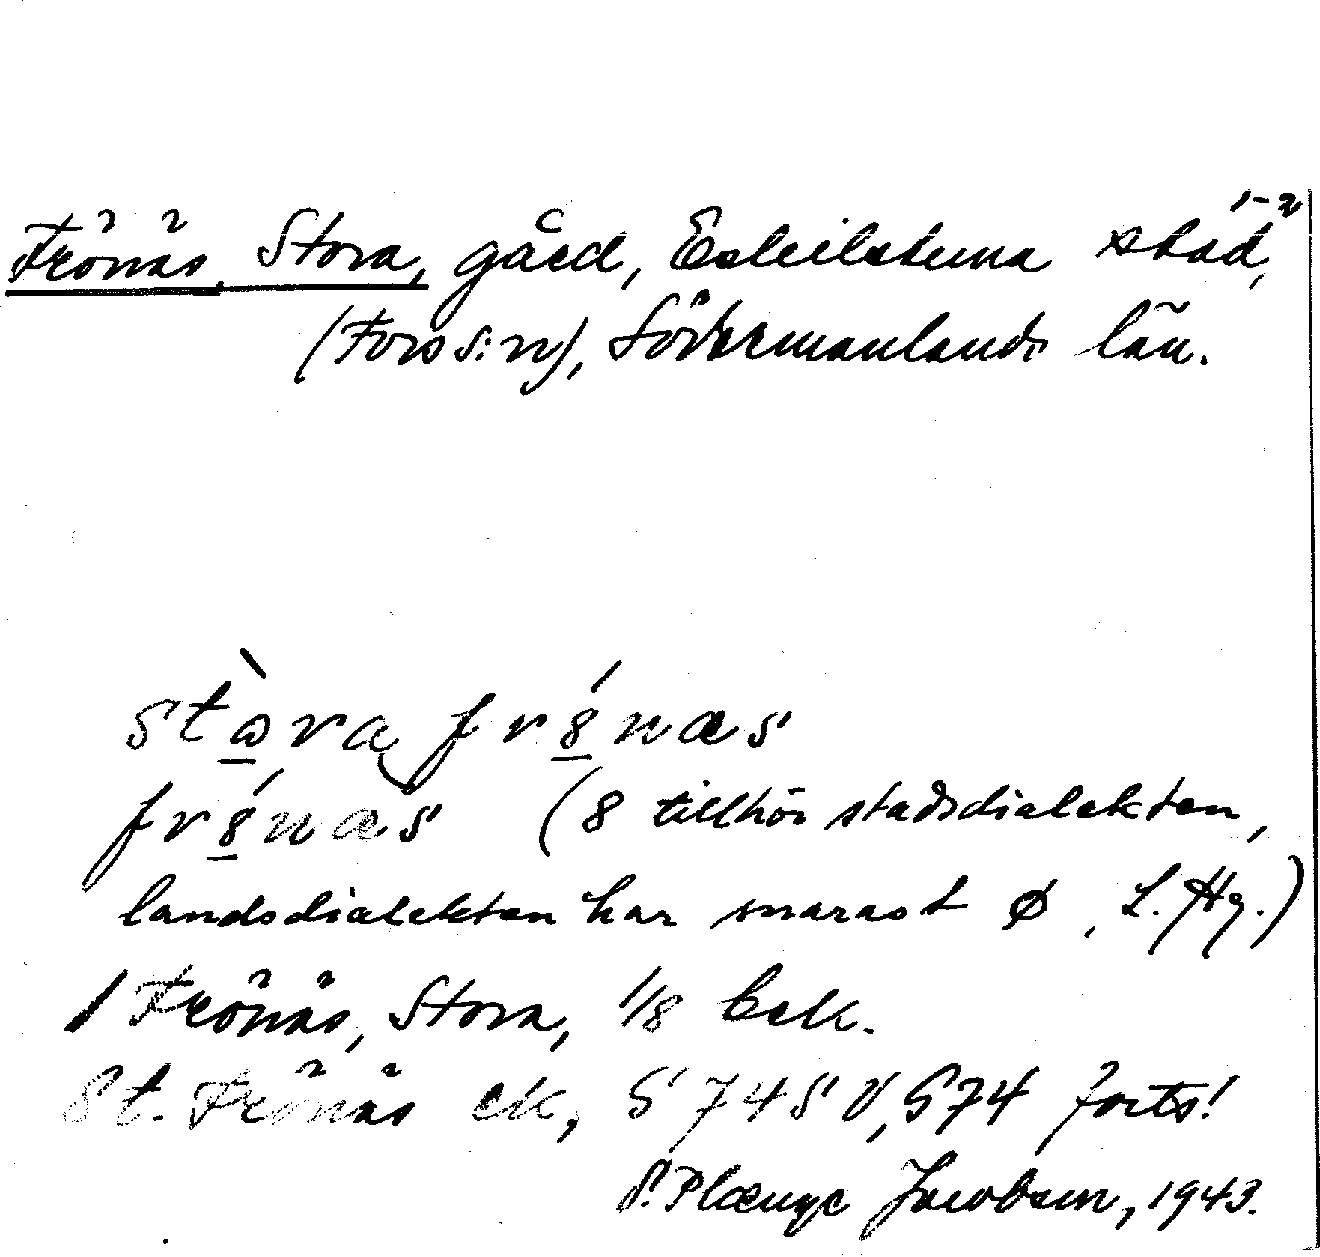 Frönäs, Stora, gård, Eskilstuna stad, 1-2
(Fors s:n), Södermanlands län.
stò̱ra fr8̱́næs
fr8̱́næs (8 tillhör stadsdialekten,
landsdialekten har snarast ø, L. Hg.)
1 Frönäs, Stora, 1/8 bek.
St. Frönäs ek, S 74 SV, S 74 forts!
S. Plænge Jacobson, 1943.